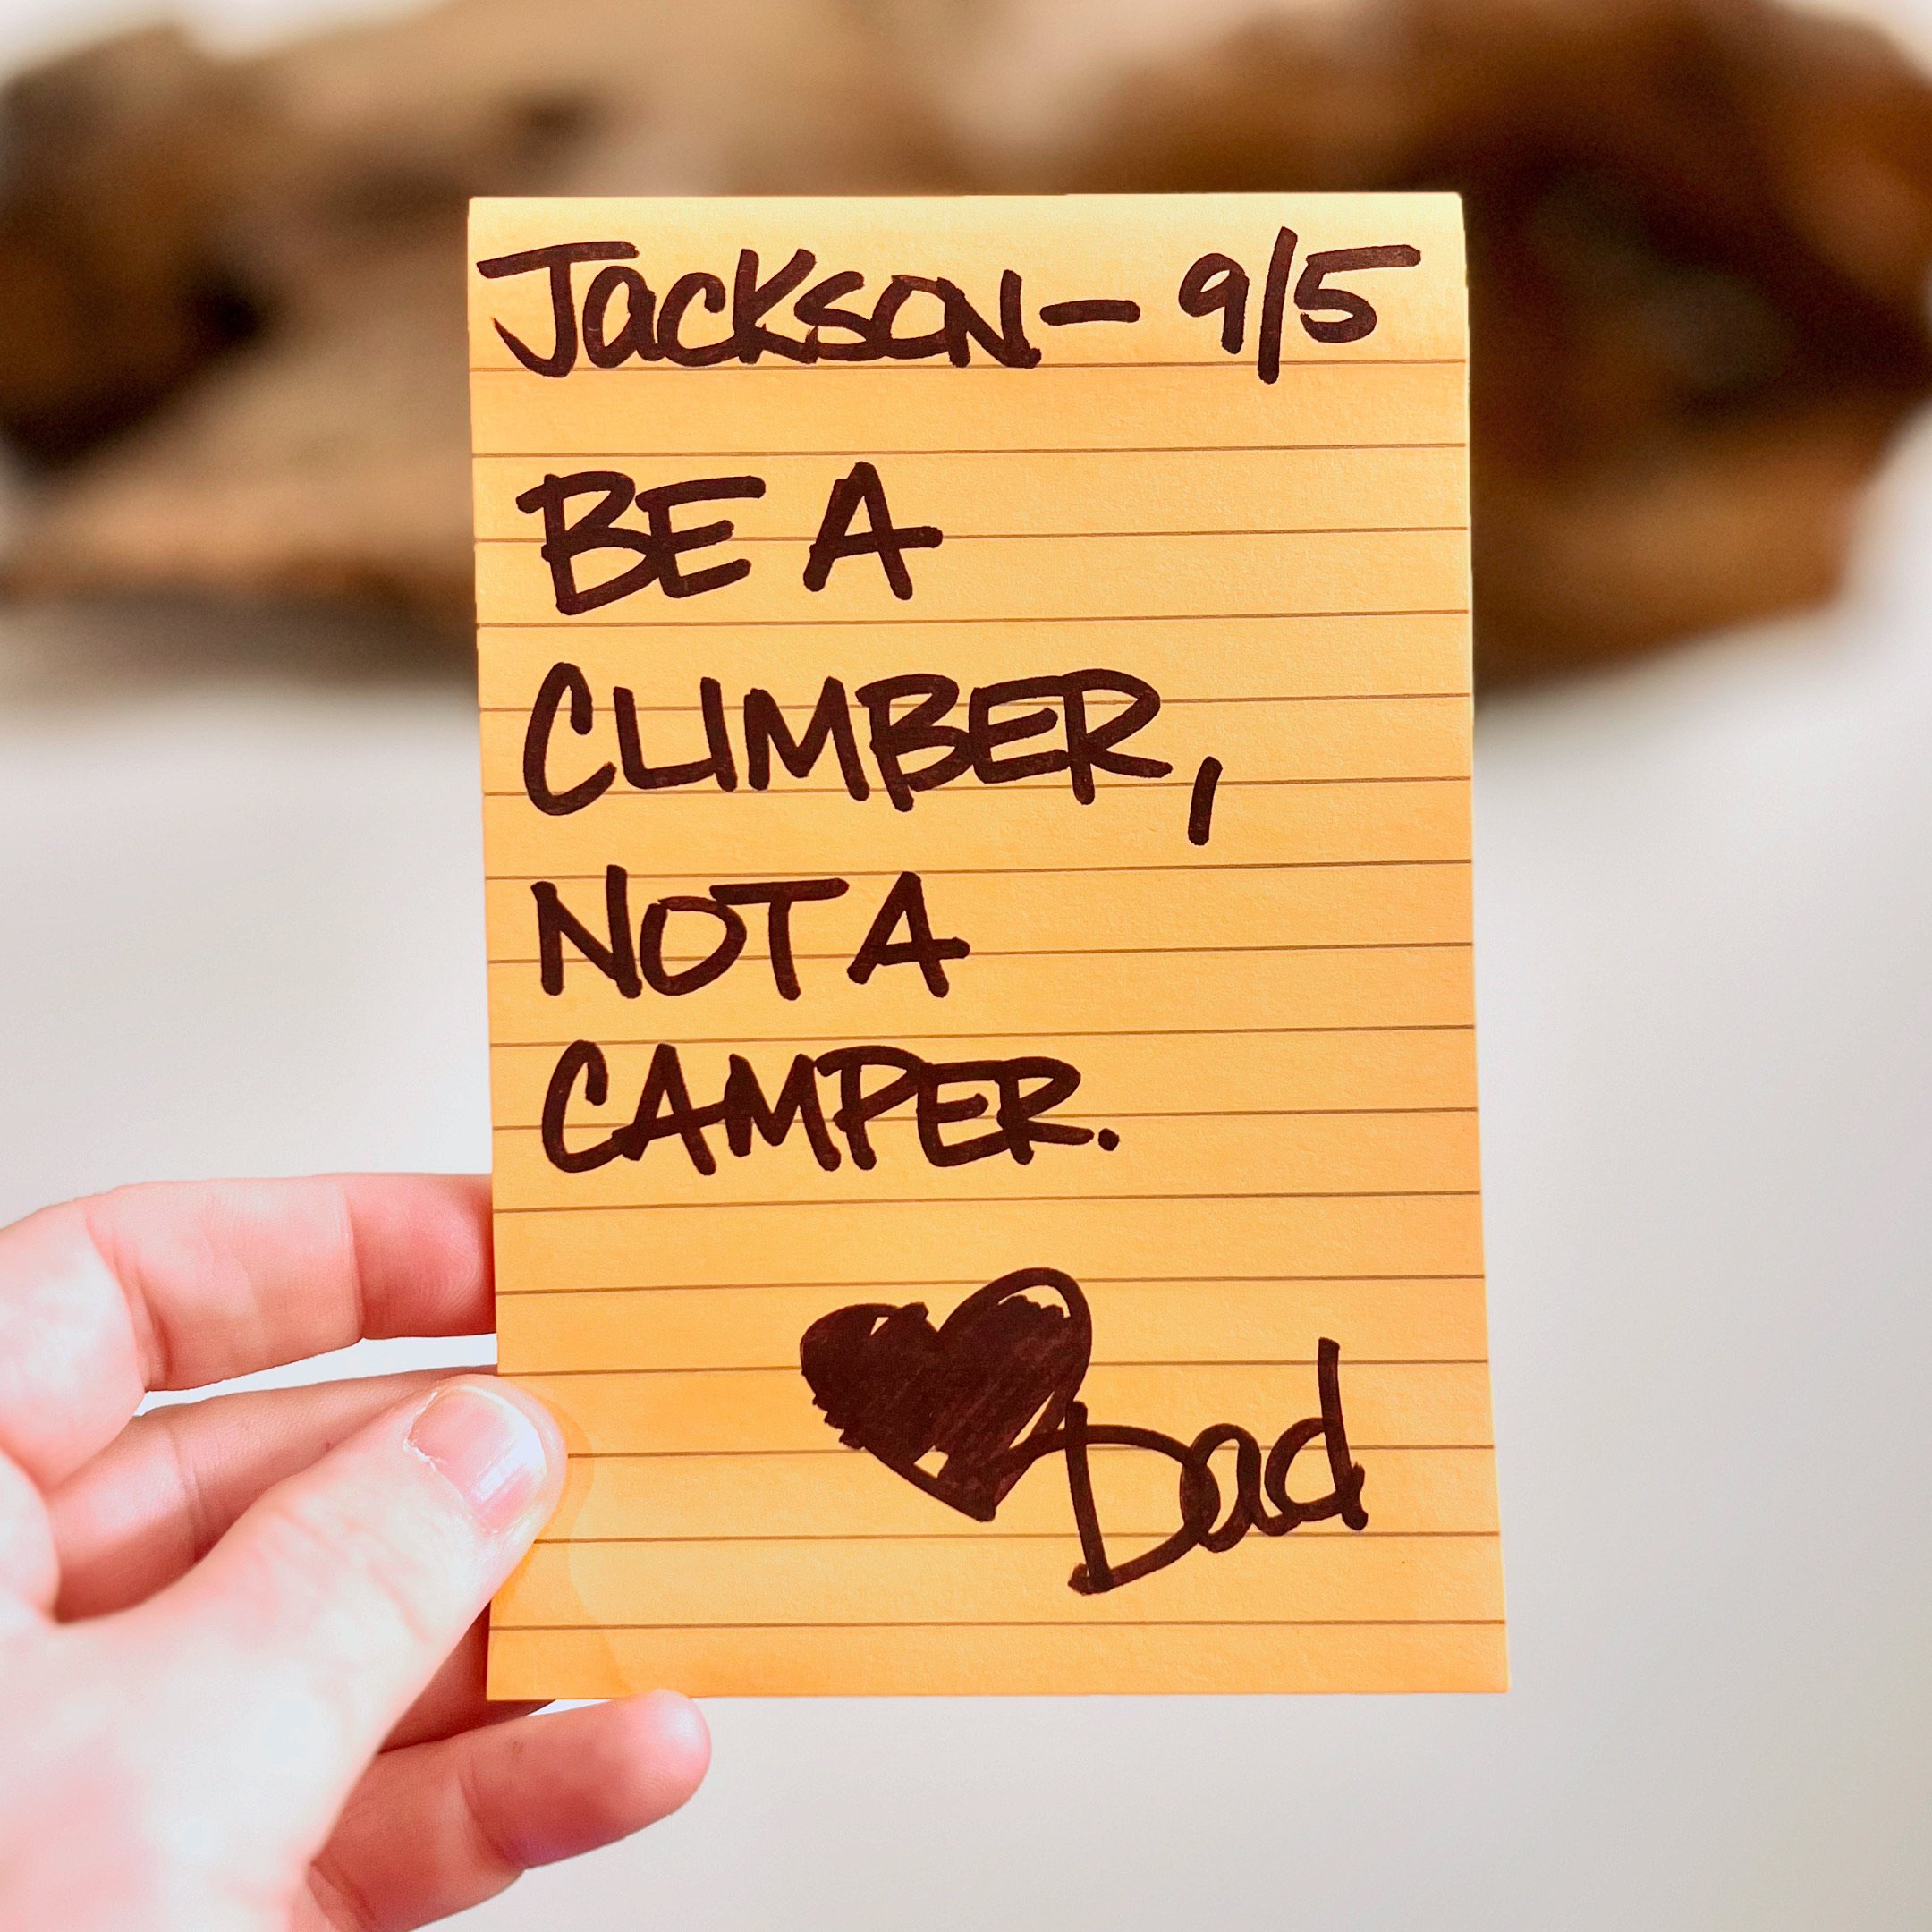 Jackson - 9/5
BE A
CLIMBER,
NOT A
CAMPER.
Dad